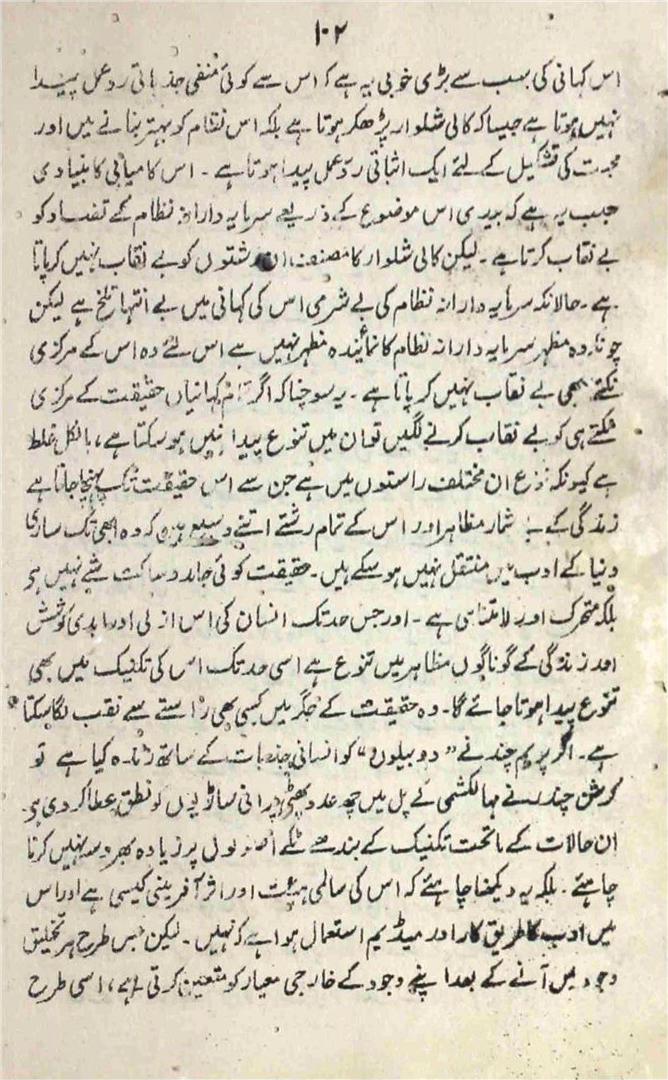 ۱۰۲
اس کہانی کی سب سے بڑی خوبی یہ ہے کہ اس سے کوئی منفی جذباتی ردعمل پیدا
نہیں ہوتا ہے جیسا کہ کالی شلوار پڑھکر ہوتا ہے بلکہ اس نظام کو بہتر بنانے میں اور
محبت کی تشکیل کے لئے ایک اثباتی ردعمل پیدا ہوتا ہے ۔ اس کامیابی کا بنیادی
سبب یہ ہے کہ بیدی اس موضوع کے ذریعے سرمایہ دارانہ نظام کے تضاد کو
بے نقاب کرتا ہے ۔ لیکن کالی شلوار کا مصنف ان رشتوں کو بے نقاب نہیں کر پاتا
ہے ۔ حالانکہ سرمایہ دارانہ نظام کی بے شرمی اس کی کہانی میں بے انتہا تلخ ہے لیکن
چونکہ وہ مظہر سرمایہ دارانہ نظام کا نمائندہ مظہر نہیں ہے اس لئے وہ اس کے مرکزی
نکتے بھی بے نقاب نہیں کر پاتا ہے ۔ یہ سوچنا کہ اگر تمام کہانیاں حقیقت کے مرکزی
نکتے ہی کو بے نقاب کرنے لگیں تو ان میں تنوع پیدا نہیں ہو سکتا ہے، بالکل غلط
ہے کیونکہ تنوع ان مختلف راستوں میں ہے جن سے اس حقیقت تک پہنچا جاتا ہے
زندگی کے بے شمار مظاہر اور اس کے تمام رشتے اتنے وسیع ہیں کہ وہ ابھی تک ساری
دنیا کے ادب میں منتقل نہیں ہو سکے ہیں ۔ حقیقت کوئی جامد و ساکت شے نہیں ہے
بلکہ متحرک اور لامتناہی ہے ۔ اور جس حد تک انسان کی اس ازلی اور ابدی کوشش
اور زندگی کے گوناگوں مظاہر میں تنوع ہے اسی حد تک اس کی تکنیک میں بھی
تنوع پیدا ہوتا جائے گا ۔ وہ حقیقت کے جگر میں کسی بھی راستے سے نقب لگا سکتا
ہے ۔ اگر پریم چند نے ”دو بیلوں“ کو انسانی جذبات کے ساتھ زندہ کیا ہے تو
کرشن چندر نے مہالکشمی کے پل میں چھ عدد پھٹی پرانی ساڑیوں کو نطق عطا کر دی ہے
ان حالات کے ماتحت تکنیک کے بندھے ٹکے اصولوں پر زیادہ بھروسہ نہیں کرنا
چاہئے ۔ بلکہ یہ دیکھنا چاہئے کہ اس کی سالمی ہیئت اور اثر آفرینی کیسی ہے اور اس
میں ادب کا طریق کار اور میڈیم استعمال ہوا ہے کہ نہیں ۔ لیکن جس طرح ہر تخلیق
وجود میں آنے کے بعد اپنے وجود کے خارجی معیار کو متعین کرتی ہے، اسی طرح